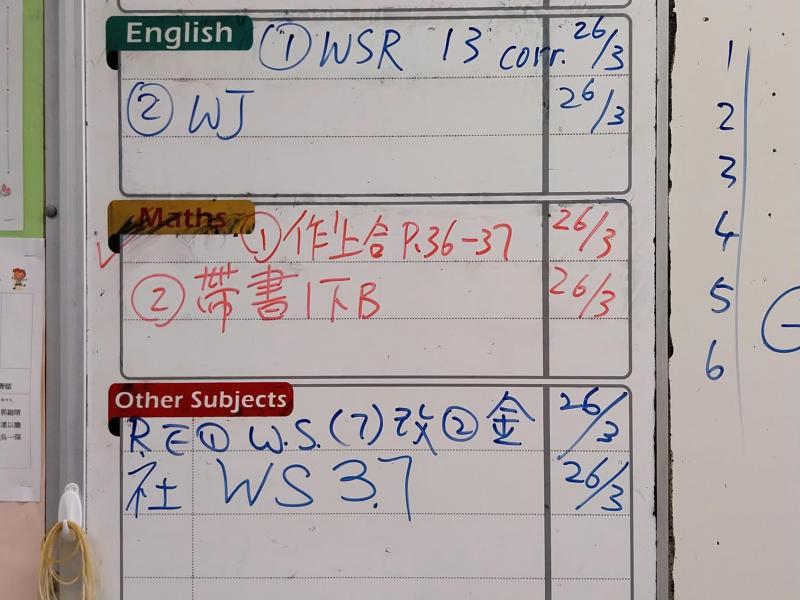 English ① WSR 13 corr. 26/3
② WJ 26/3
Maths ① 作上合 P.36-37 26/3
② 帶書1下B 26/3
Other Subjects
R.E ① W.S.(7)改 ② 金 26/3
社 WS 3.7 26/3
1
2
3
4
5
6